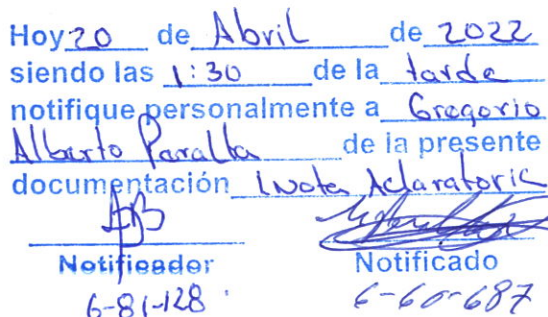 Hoy 20 de Abril de 2022
siendo las 1:30 de la tarde
notifique personalmente a Gregorio
Alberto Paralta de la presente
documentación Nota Aclaratoria
Notificador Notificado
6-81-128 6-60-687